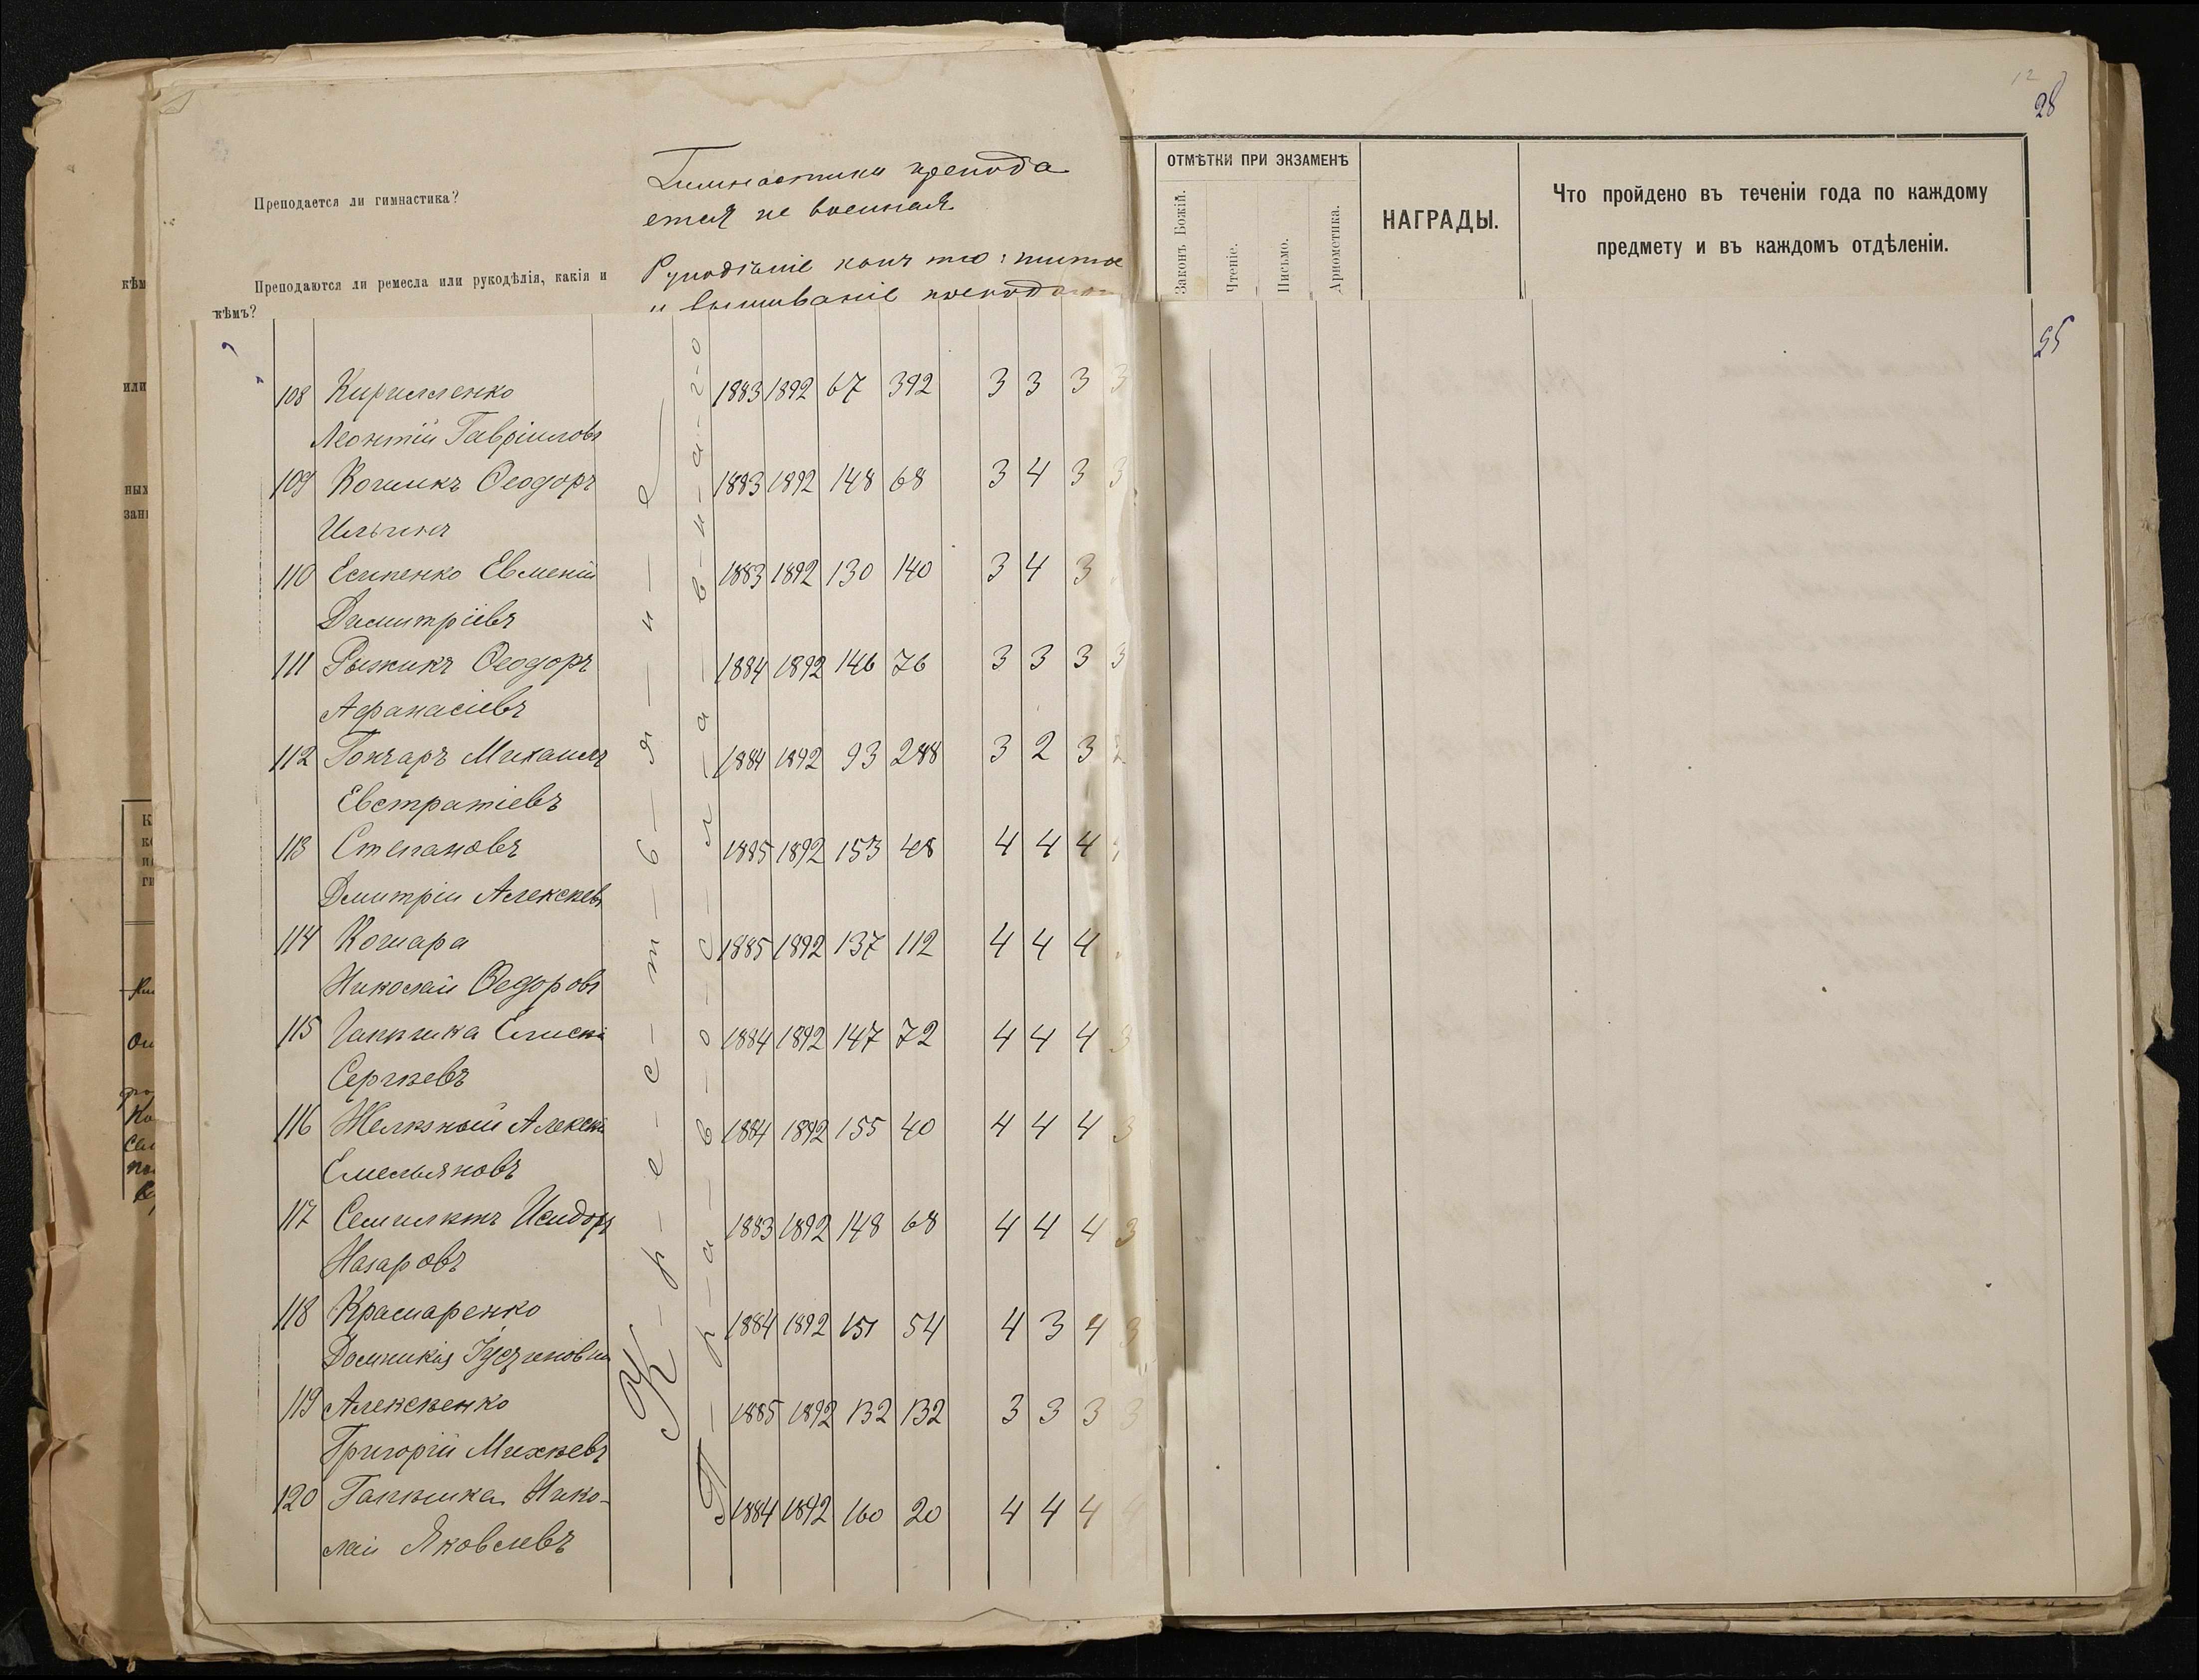 28
Преподается ли гимнастика?
Гимнастика препода
ется не военная.
Преподаются ли ремесла или рукодѣлія, какія и
кѣмъ?
Рукодѣліе какъ то: шитье
и вышиваніе преподают
ОТМѢТКИ ПРИ ЭКЗАМЕНѢ
Законъ Божій.
Чтеніе.
Письмо.
Ариѳметика.
НАГРАДЫ.
Что пройдено въ теченіи года по каждому
предмету и въ каждомъ отдѣленіи.
55
К-р-е-с-т-ь-я-н-е
П-р-а-в-о-с-л-а-в-н-а-г-о
108 Кириленко 1883 1892 67 392 3 3 3 3
Леонтій Гавріиловъ
109 Кошикъ Ѳеодоръ 1883 1892 148 68 3 4 3 3
Ильичъ
110 Есипенко Евменій 1883 1892 130 140 3 4 3
Димитріевъ
111 Рыжикъ Ѳеодоръ 1884 1892 146 76 3 3 3 3
Афанасіевъ
112 Гончаръ Михаилъ 1884 1892 93 288 3 2 3 2
Евстратіевъ
113 Степановъ 1885 1892 153 48 4 4 4
Дмитрій Алексѣевъ
114 Кошара 1885 1892 137 112 4 4 4
Николай Ѳедоровъ
115 1884 1892 147 72 4 4 4 3
Сергѣевъ
116 Желѣзный Алексѣй 1884 1892 155 40 4 4 4 3
Емельяновъ
117 Исидоръ 1883 1892 148 68 4 4 4 3
Назаровъ
118 Крамаренко 1884 1892 151 54 4 3 4 3
Домникія
119 Алексѣенко 1885 1892 132 132 3 3 3 3
Григорій Михѣевъ
120 Нико-
лай Яковлевъ 1884 1892 160 20 4 4 4 4